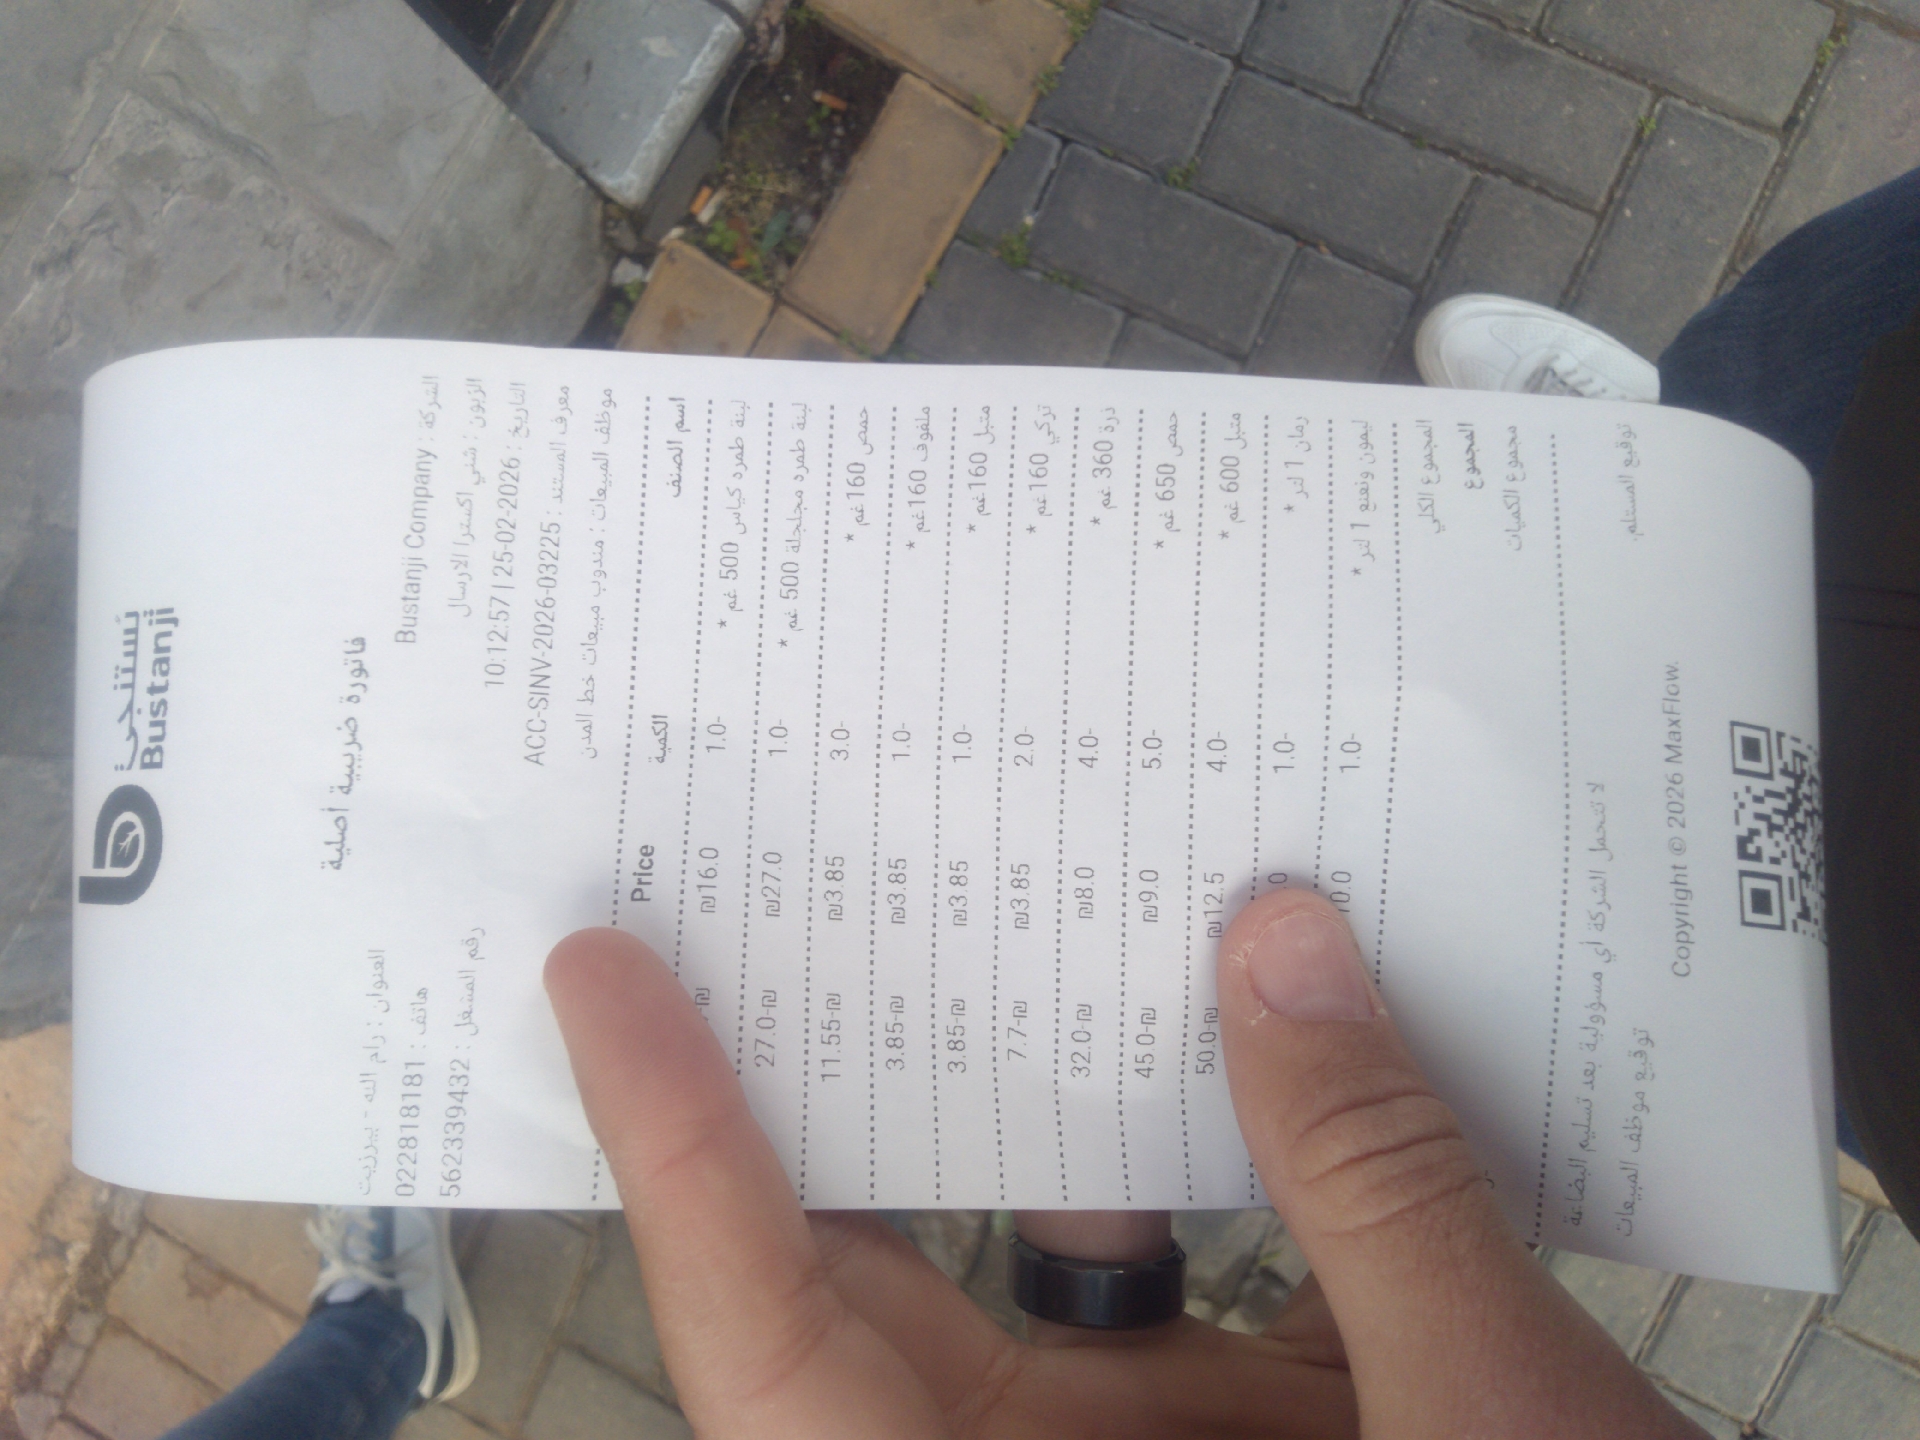 بستنجي
Bustanji
فاتورة ضريبية أصلية
العنوان : رام الله - بيرزيت
الشركة : Bustanji Company
هاتف : 022818181
الزبون : شني اكسترا الارسال
رقم المشتغل : 562339432
التاريخ : 25-02-2026 | 10:12:57
معرف المستند : ACC-SINV-2026-03225
موظف المبيعات : مندوب مبيعات خط المدن
اسم الصنف الكمية Price
لبنة طمره كياس 500 غم * 1.0- ₪16.0
لبنة طمره مجلجلة 500 غم * 1.0- ₪27.0 27.0-₪
حمص 160غم * 3.0- ₪3.85 11.55-₪
ملفوف 160غم * 1.0- ₪3.85 3.85-₪
متبل 160غم * 1.0- ₪3.85 3.85-₪
تركي 160غم * 2.0- ₪3.85 7.7-₪
ذرة 360 غم * 4.0- ₪8.0 32.0-₪
حمص 650 غم * 5.0- ₪9.0 45.0-₪
متبل 600 غم * 4.0- ₪12.5 50.0-₪
رمان 1 لتر * 1.0-
ليمون ونعنع 1 لتر * 1.0- 10.0
المجموع الكلي
المجموع
مجموع الكميات
لا تتحمل الشركة أي مسؤولية بعد تسليم البضاعة
توقيع المستلم: توقيع موظف المبيعات
Copyright © 2026 MaxFlow.